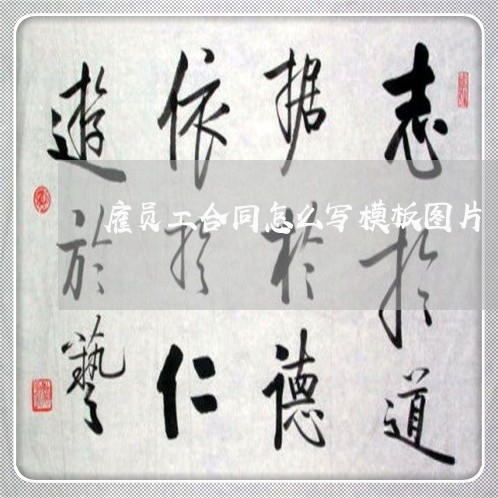 志於道
据於德
依於仁
遊於藝
雇员工合同怎么写模板图片